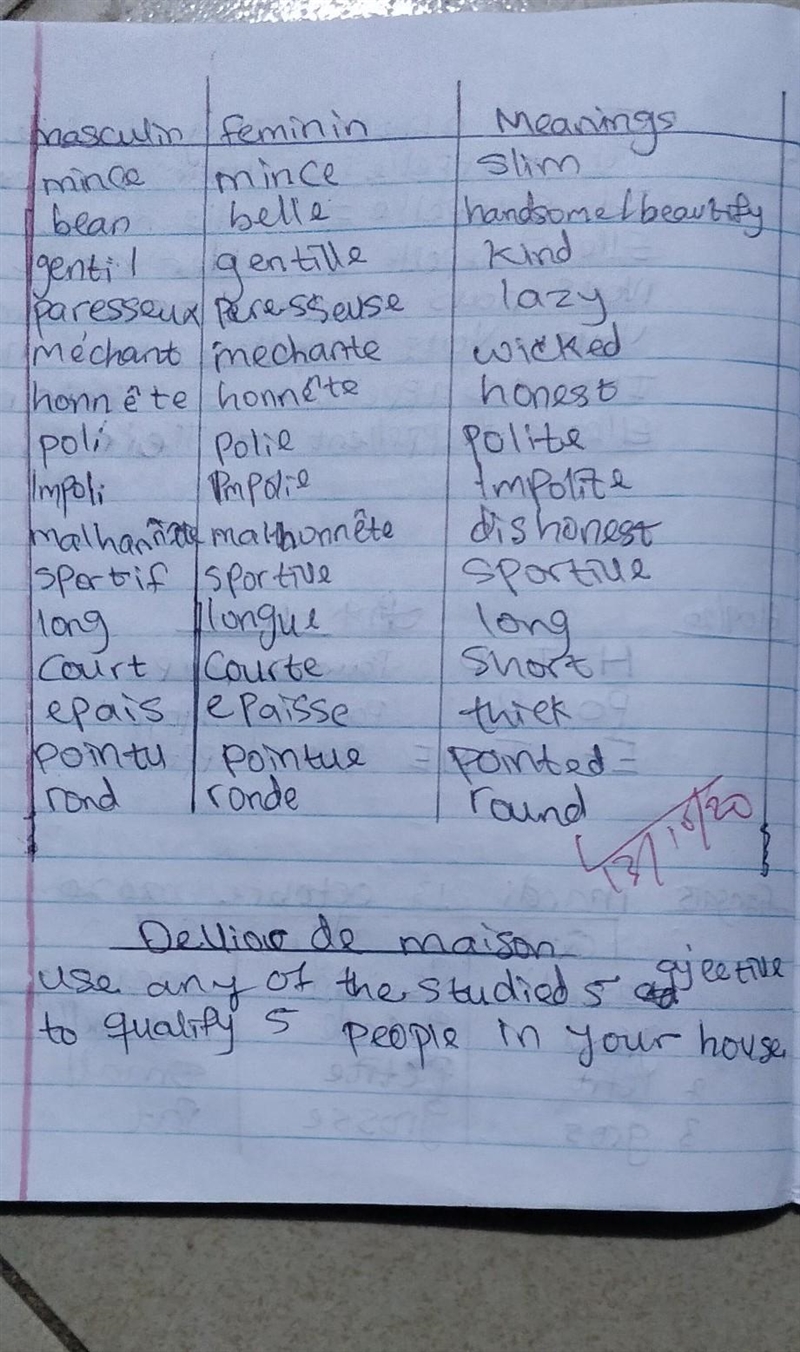 masculin feminin Meanings
mince mince slim
bean belle handsome/beautify
gentil gentille kind
paresseux paresseuse lazy
méchant mechante wicked
honnête honnête honest
poli polie polite
impoli impolie impolite
malhonnête dishonest
sportif sportive sportive
long longue long
court courte short
epais epaisse thick
pointu pointue pointed
rond ronde round
de maison
use any of the studied 5 adjective
to qualify 5 people in your house